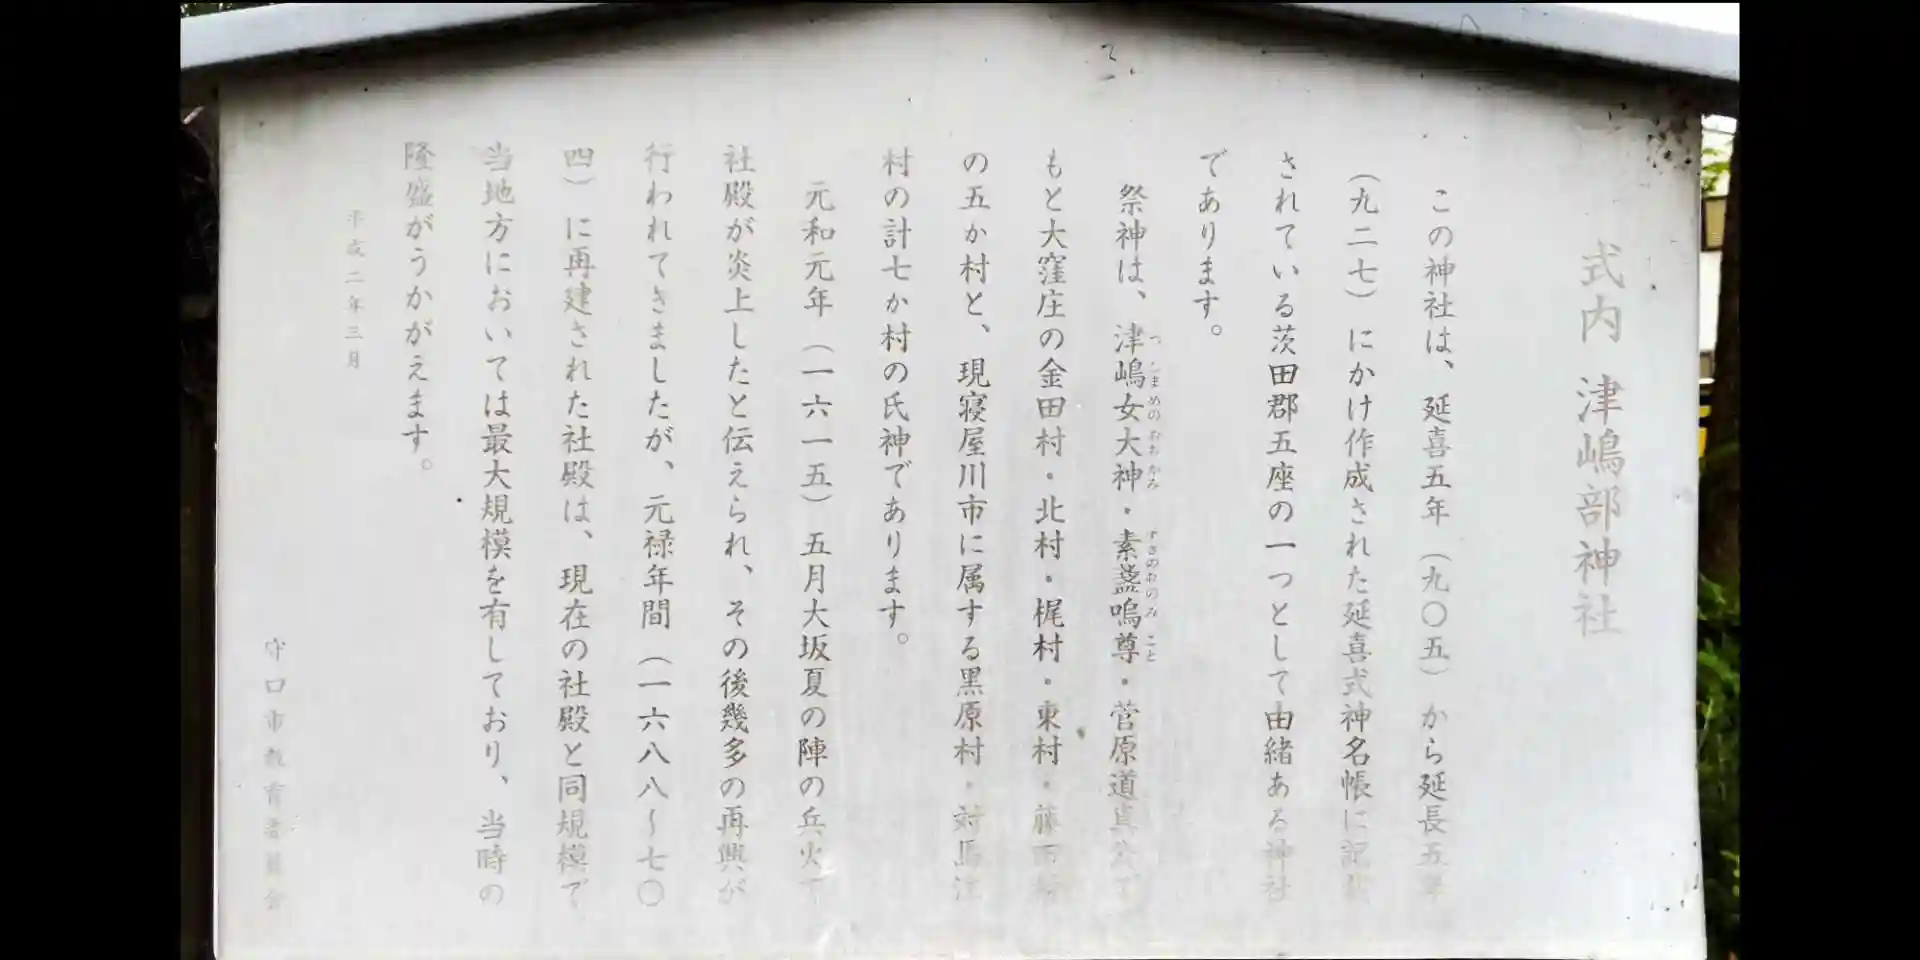 式内 津嶋部神社
この神社は、延喜五年（九〇五）から延長五年
（九二七）にかけ作成された延喜式神名帳に記載
されている茨田郡五座の一つとして由緒ある神社
であります。
祭神は、津嶋女大神・素盞嗚尊・菅原道真公で
つしまめのおおかみ すさのおのみこと
もと大窪庄の金田村・北村・梶村・東村・藤田村
の五か村と、現寝屋川市に属する黒原村・対馬江
村の計七か村の氏神であります。
元和元年（一六一五）五月大坂夏の陣の兵火で
社殿が炎上したと伝えられ、その後幾多の再興が
行われてきましたが、元禄年間（一六八八〜七〇
四）に再建された社殿は、現在の社殿と同規模で
当地方においては最大規模を有しており、当時の
隆盛がうかがえます。
平成二年三月
守口市教育委員会